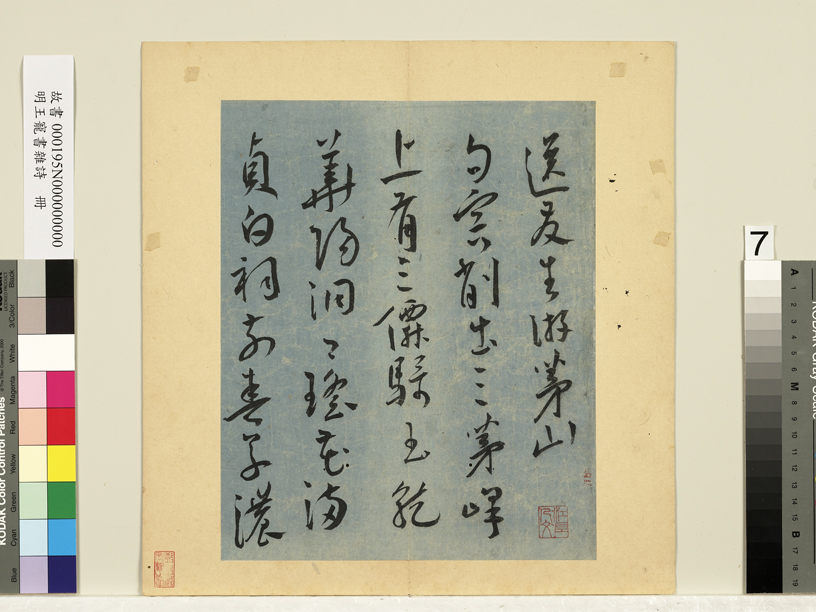 送友生游茅山
句容削出三茅峰
上有三僊騎玉龍
華陽洞口瑤花滿
貞白祠前春草濃
故書 000195N000000000
明王寵書雜詩 冊
7
KODAK Color Control Patches
Blue Cyan Green Yellow Red Magenta White 3/Color Black
A 1 2 3 4 5 6 M 8 9 10 11 12 13 14 15 B 17 18 19